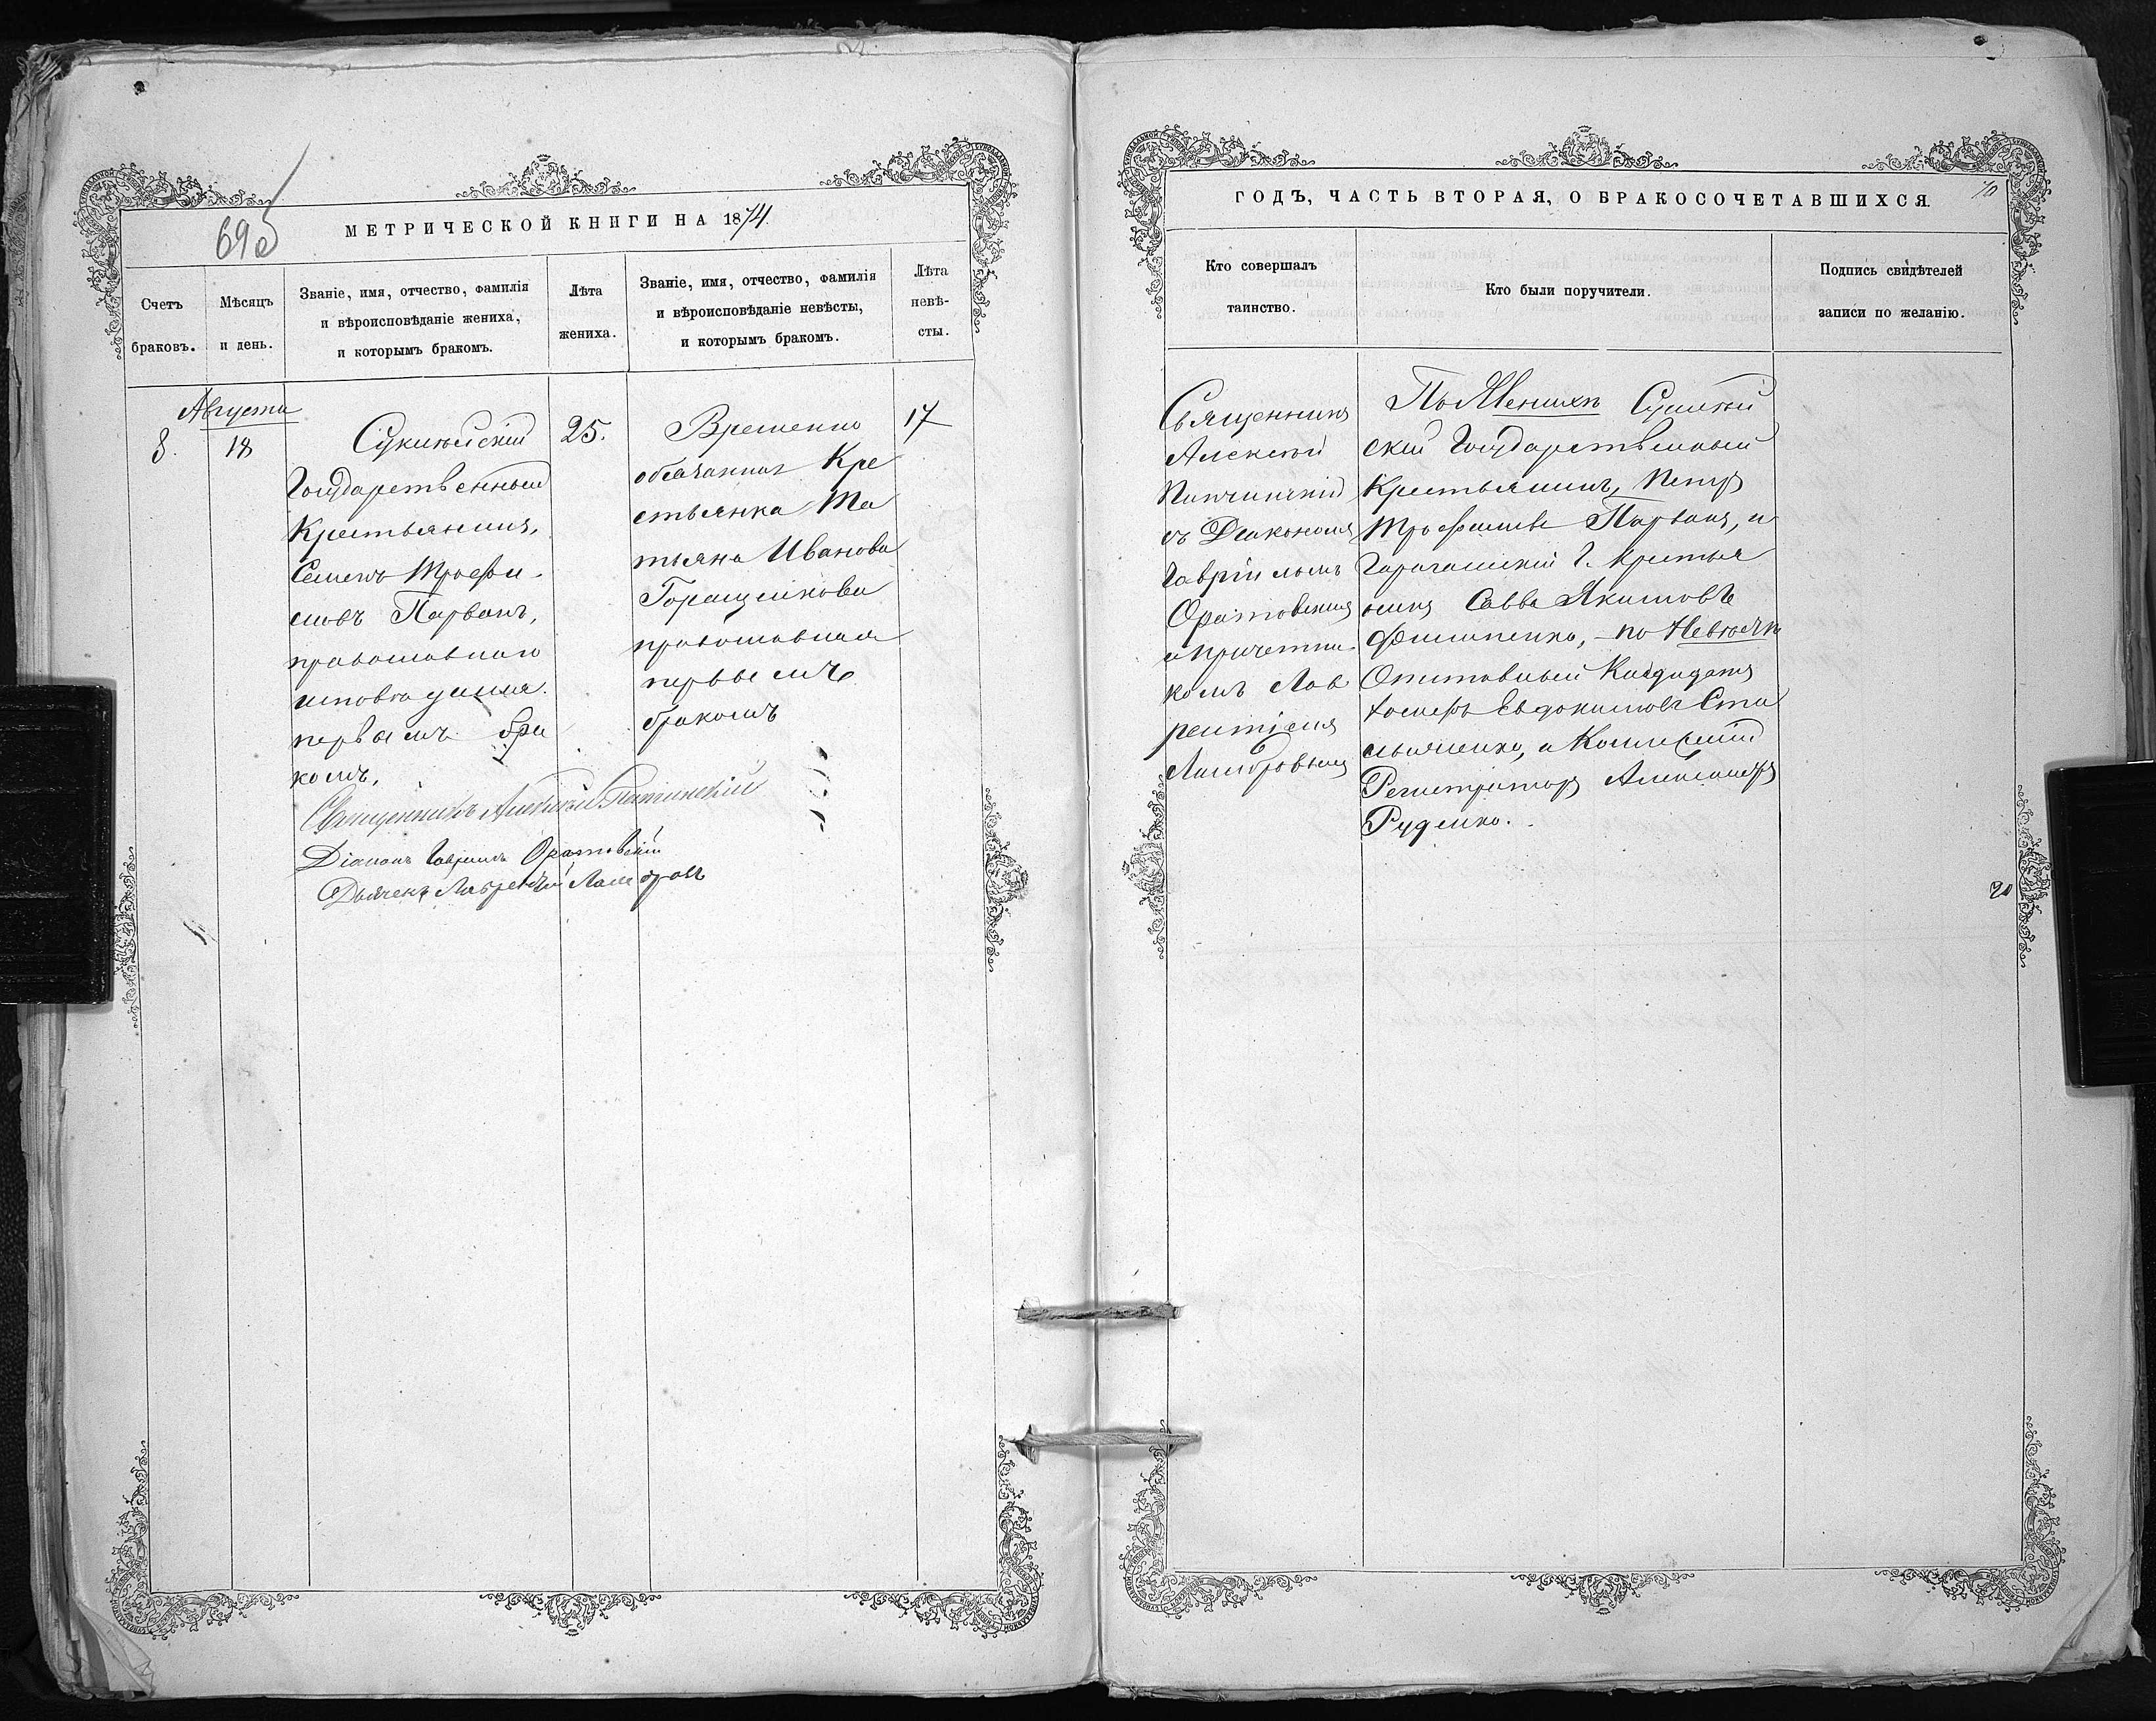 69
МЕТРИЧЕСКОЙ КНИГИ НА 1874.
Счетъ
браковъ.
Мѣсяцъ
и день.
Званіе, имя, отчество, фамилія
и вѣроисповѣданіе жениха,
и которымъ бракомъ.
Лѣта
жениха.
Званіе, имя, отчество, фамилія
и вѣроисповѣданіе невѣсты,
и которымъ бракомъ.
Лѣта
невѣ-
сты.
Августа
8.
18
Государственный
Крестьянинъ,
Семенъ Трофи-
мовъ Парванъ,
православнаго
исповѣданія.
первымъ бра
комъ.
25.
Временно
обязанная Кре
стьянка Та
тьяна Иванова
Горащенкова
православная
первымъ
бракомъ
17
Священникъ Алексѣй
Діаконъ Гавріилъ Оратовскій
Дьячекъ Лаврентій
ГОДЪ, ЧАСТЬ ВТОРАЯ, О БРАКОСОЧЕТАВШИХСЯ.
70
Кто совершалъ
таинство.
Кто были поручители.
Подпись свидѣтелей
записи по желанію.
Священникъ
Алексѣй
съ Діакономъ
Гавріиломъ
Оратовскимъ
и причетни-
комъ Лав
рентіемъ
По Женихѣ
скій Государственный
Крестьянинъ, Петръ
Трофимовъ Парванъ, и
Г. крестья
нинъ Савва Якимовъ
Филипенко, – по Невѣстѣ
Отставный Кандидатъ
Іосифъ Евдокимовъ Ста
и Коллежскій
Регистраторъ Александръ
Руденко.